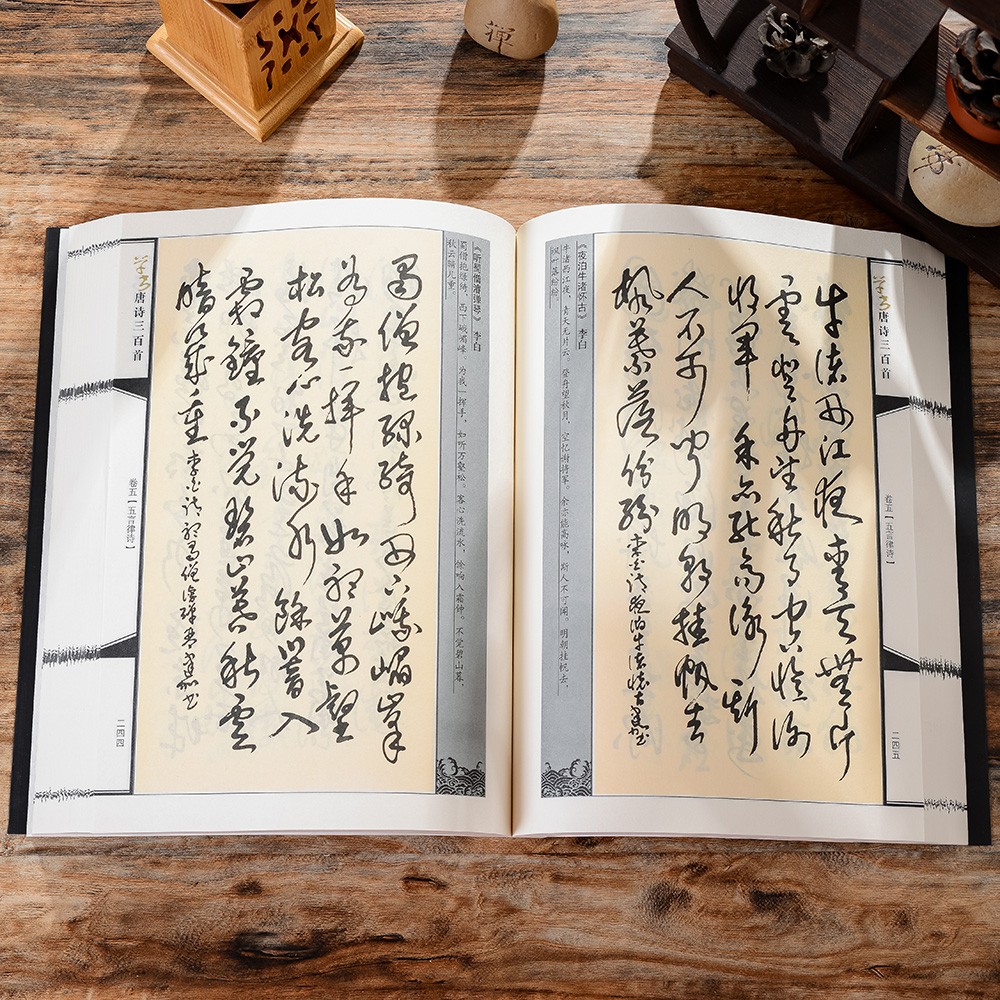 禪
《听蜀僧濬弹琴》 李白
蜀僧抱绿绮，西下峨嵋峰。为我一挥手，如听万壑松。客心洗流水，馀响入霜钟。不觉碧山暮，
秋云暗几重。
蜀僧抱綠綺西下峨嵋峯
為我一揮手如聽萬壑
松客心洗流水餘響入
霜鐘不覺碧山暮秋雲
暗幾重 李白詩聽蜀僧濬彈琴
草书唐诗三百首
卷五【五言律诗】
二四四
草书唐诗三百首
卷五【五言律诗】
二四五
牛渚西江夜青天無片
雲登舟望秋月空憶謝
將軍余亦能高詠斯
人不可聞明朝挂帆去
楓葉落紛紛 李白詩夜泊牛渚懷古
《夜泊牛渚怀古》 李白
牛渚西江夜，青天无片云。登舟望秋月，空忆谢将军。余亦能高咏，斯人不可闻。明朝挂帆去，
枫叶落纷纷。